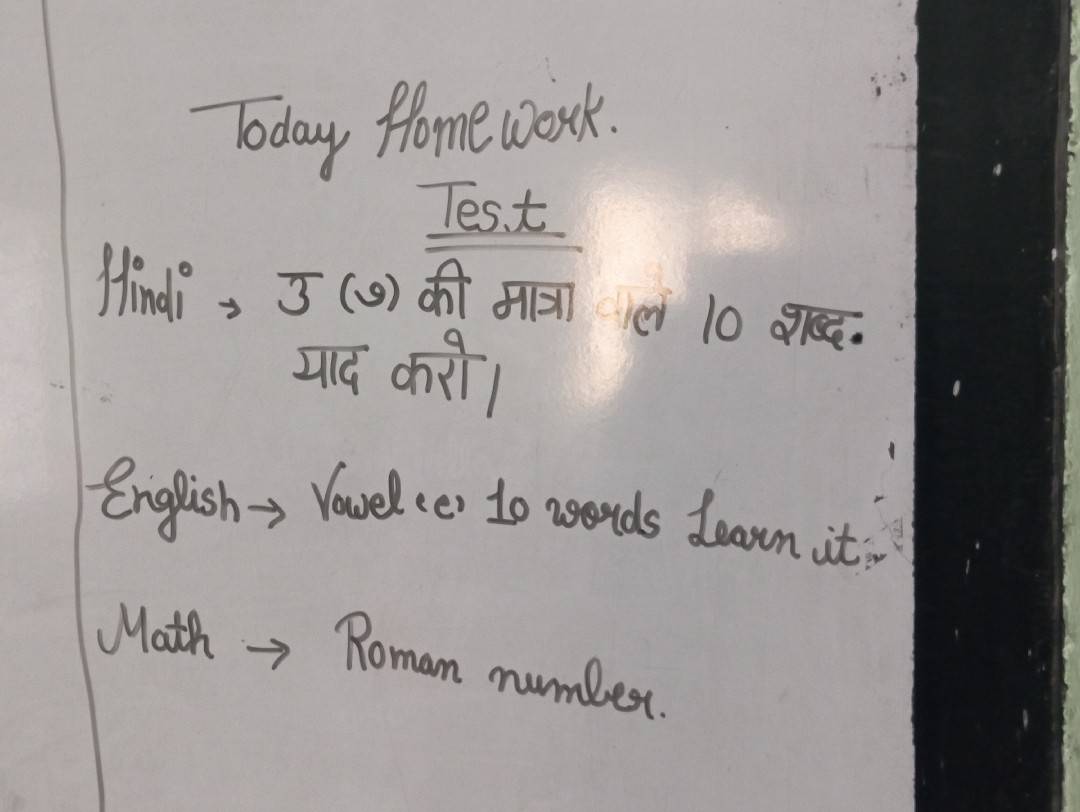 Today Home work.
Test
Hindi → उ (ु) की मात्रा वाले 10 शब्द.
याद करो।
English → Vowel (e) 10 words Learn it.
Math → Roman number.